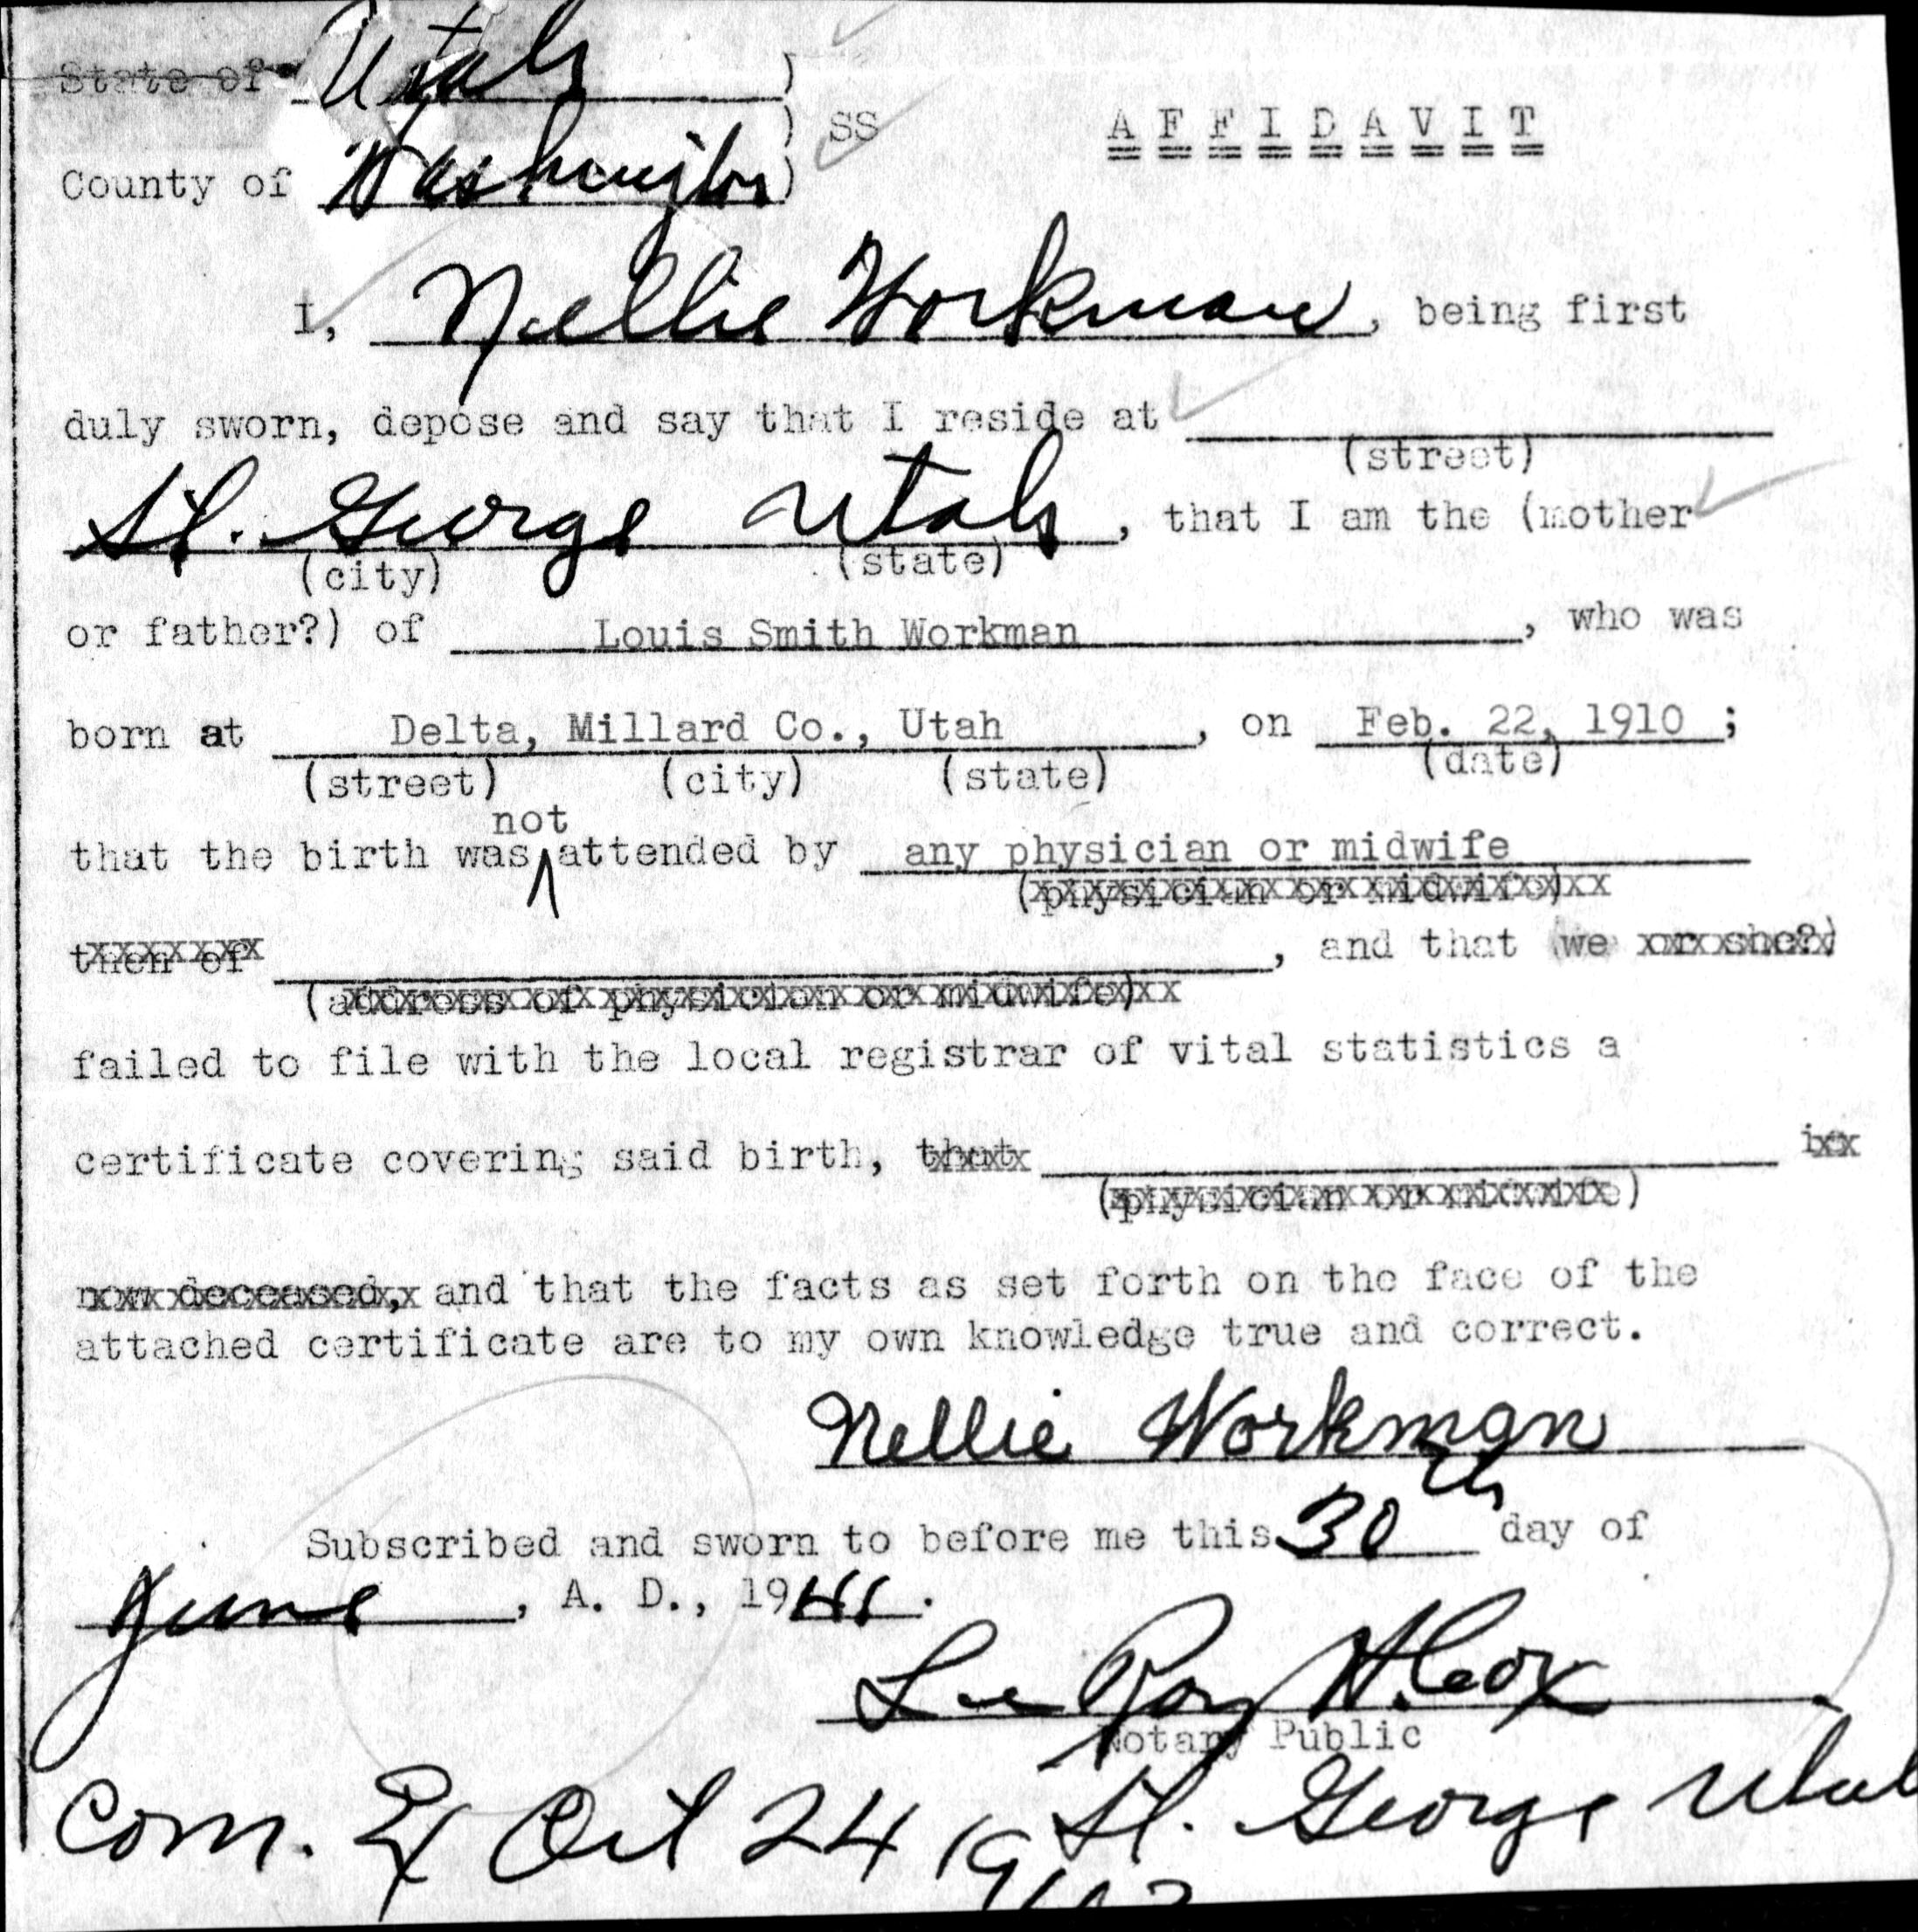 State of Utah )
) SS
A F F I D A V I T
County of Washington )
I, Nellie Workman, being first
duly sworn, depose and say that I reside at
(street)
St. George Utah, that I am the (mother
(city) (state)
or father?) of Louis Smith Workman, who was
born at Delta, Millard Co., Utah, on Feb. 22, 1910 ;
(street) (city) (state) (date)
not
that the birth was attended by any physician or midwife
(physician or midwife)
then of , and that we or she?)
(address of physician or midwife)
failed to file with the local registrar of vital statistics a
certificate covering said birth, that
(physician or midwife)
now deceased, and that the facts as set forth on the face of the
attached certificate are to my own knowledge true and correct.
Nellie Workman
Subscribed and sworn to before me this 30th day of
June, A. D., 1941.
LeRoy H. Cox
Notary Public
Com. Ex Oct 24 19 St. George Utah